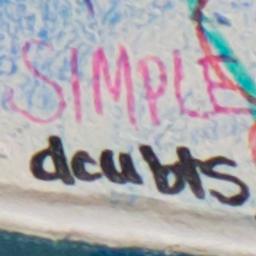 SIMPLE
dcubts